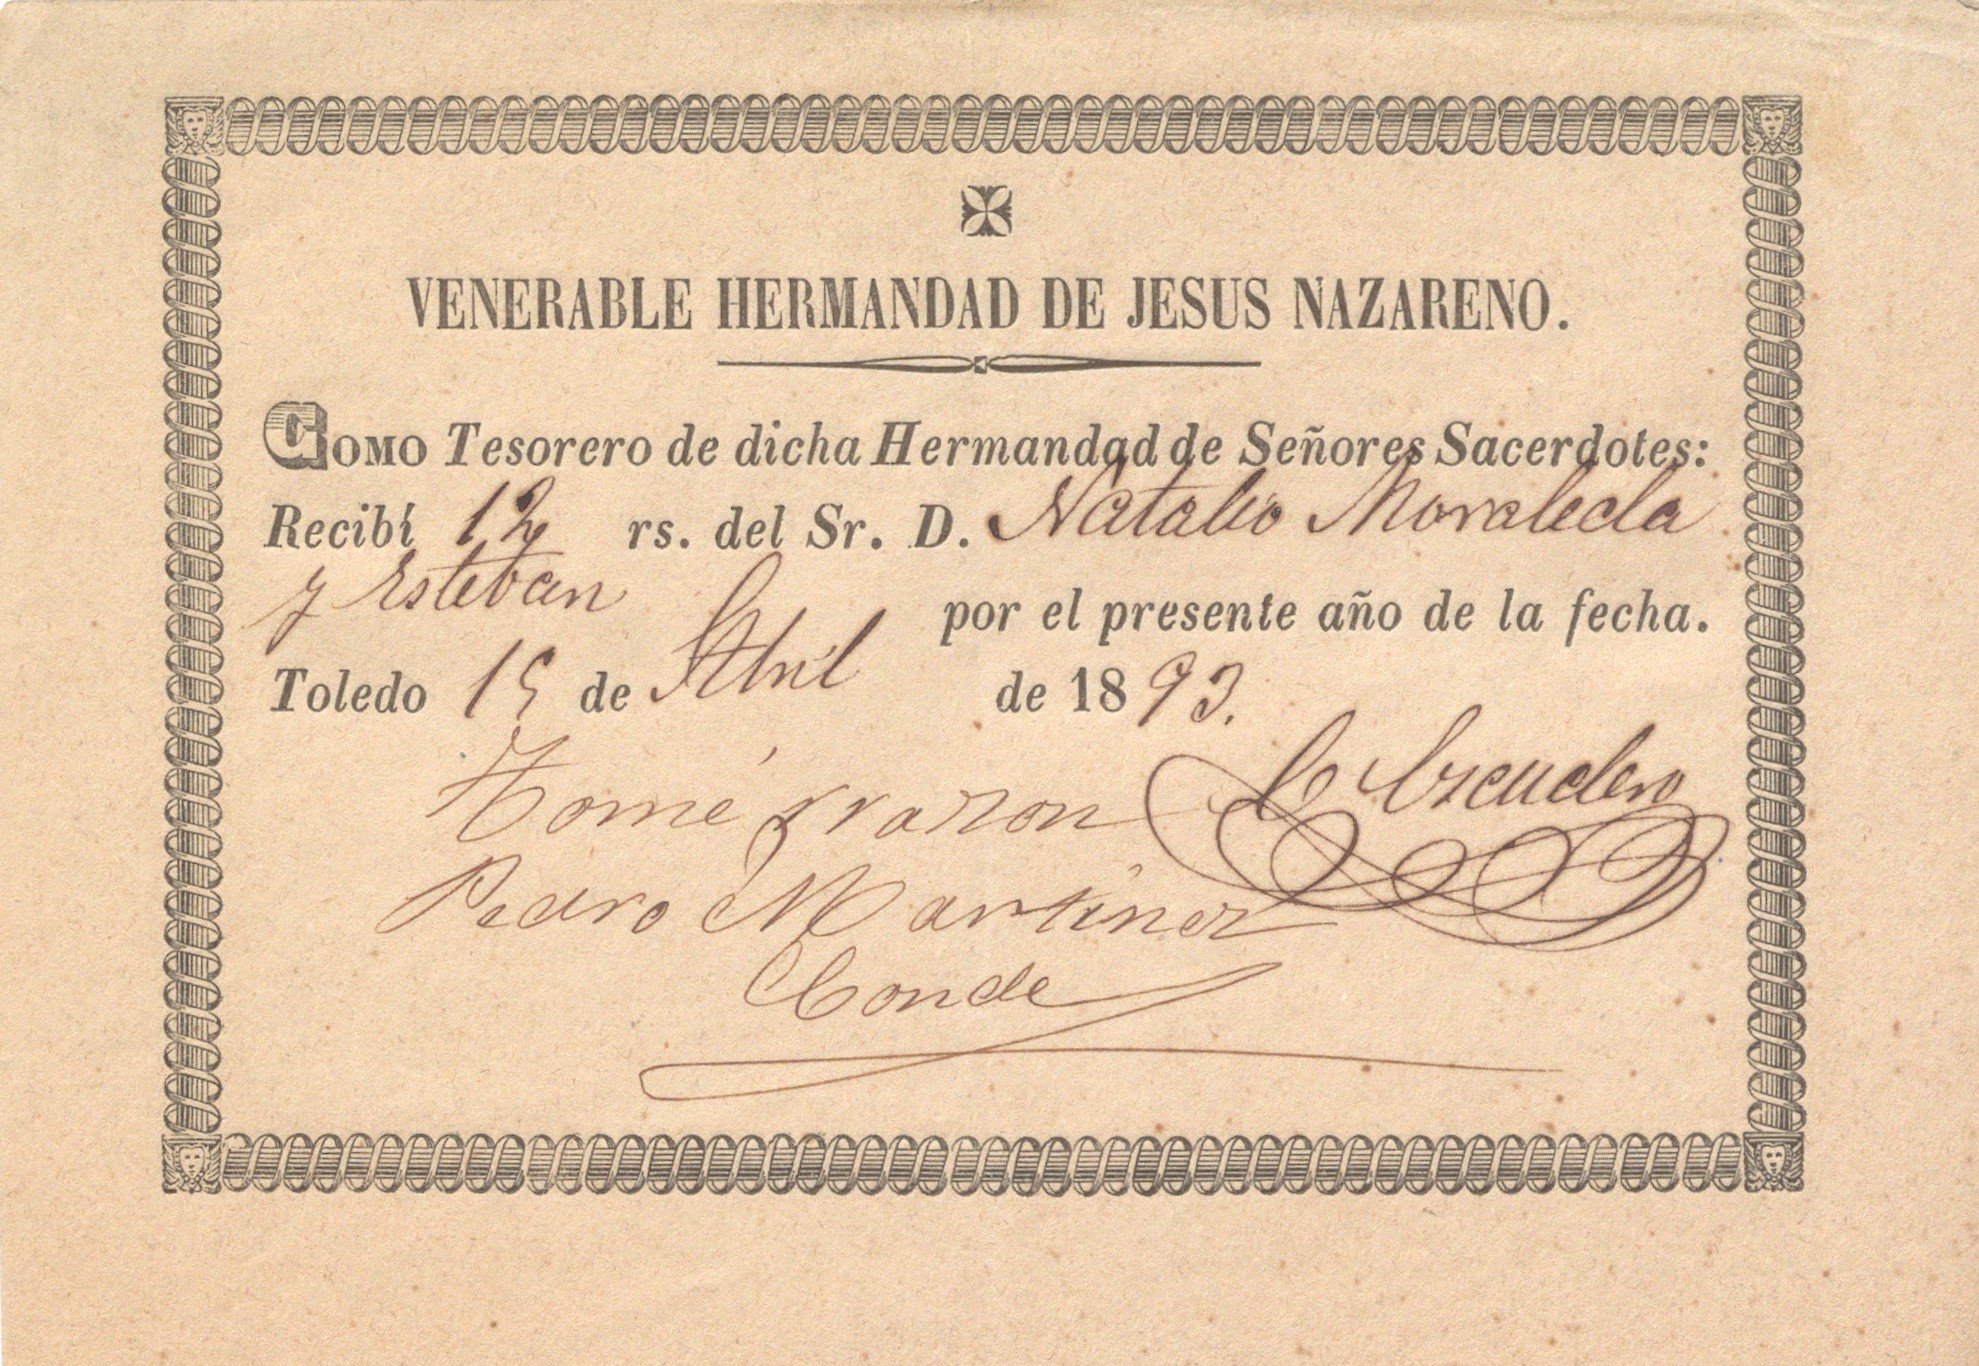 VENERABLE HERMANDAD DE JESUS NAZARENO.
COMO Tesorero de dicha Hermandad de Señores Sacerdotes:
Recibí 12 rs. del Sr. D. Natalio Moraleda
y Esteban por el presente año de la fecha.
Toledo 15 de Abril de 1893.
Escudero
Tomé razon
Pedro Martinez
Conde